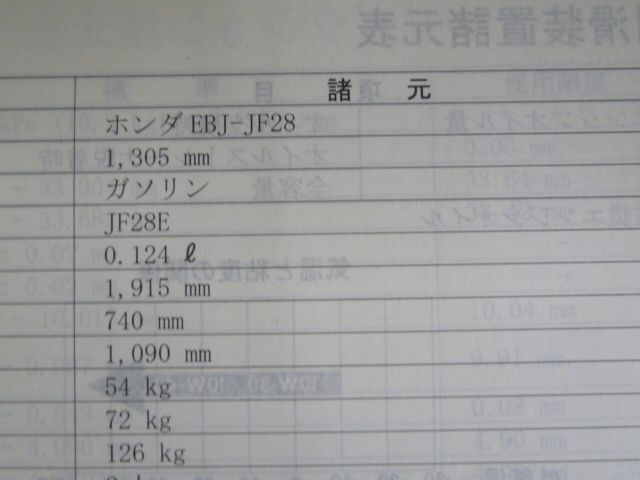 諸 元
ホンダ EBJ-JF28
1,305 mm
ガソリン
JF28E
0.124 ℓ
1,915 mm
740 mm
1,090 mm
54 kg
72 kg
126 kg